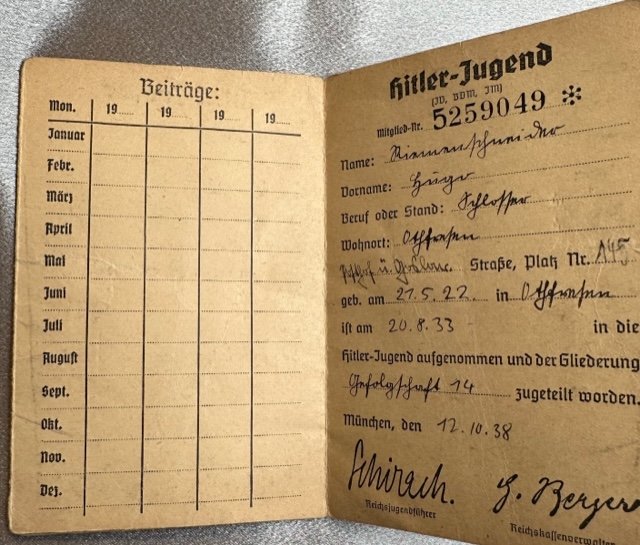 Beiträge:
Mon. 19...... 19...... 19...... 19......
Januar
Febr.
März
April
Mai
Juni
Juli
August
Sept.
Okt.
Nov.
Dez.
Hitler-Jugend
(JV, BDM, JM)
Mitglied-Nr. 5259049 *
Name: Riemenschneider
Vorname: Hugo
Beruf oder Stand: Schlosser
Wohnort: Othfresen
ü. Goslar. Straße, Platz Nr. 145
geb. am 21.5.22. in Othfresen
ist am 20.8.33 - in die
Hitler-Jugend aufgenommen und der Gliederung
Gefolgschaft 14 zugeteilt worden.
München, den 12.10.38
Schirach. G. Berger
Reichsjugendführer Reichskassenverwalter